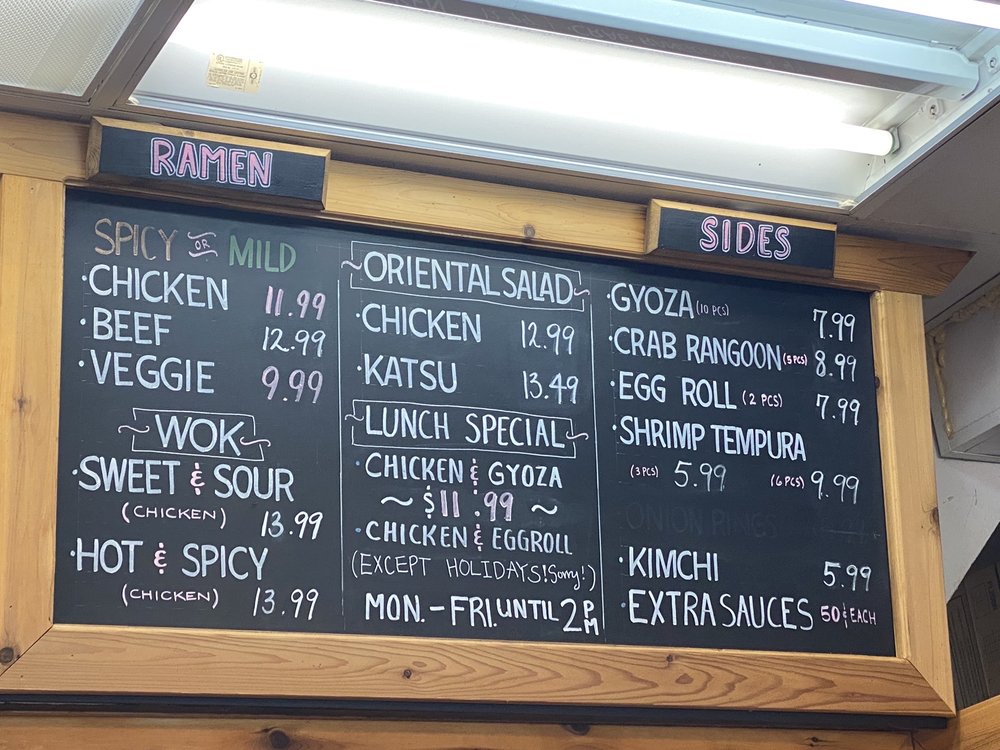 RAMEN
SPICY OR MILD
·CHICKEN 11.99
·BEEF 12.99
·VEGGIE 9.99
WOK
·SWEET & SOUR
(CHICKEN) 13.99
·HOT & SPICY
(CHICKEN) 13.99
~ORIENTAL SALAD~
·CHICKEN 12.99
·KATSU 13.49
~LUNCH SPECIAL~
·CHICKEN & GYOZA
~ $11.99 ~
·CHICKEN & EGGROLL
(EXCEPT HOLIDAYS! Sorry!)
MON.-FRI. UNTIL 2PM
SIDES
·GYOZA (10 PCS) 7.99
·CRAB RANGOON (5 PCS) 8.99
·EGG ROLL (2 PCS) 7.99
·SHRIMP TEMPURA
(3 PCS) 5.99 (6 PCS) 9.99
ONION RINGS
·KIMCHI 5.99
·EXTRA SAUCES 50¢ EACH